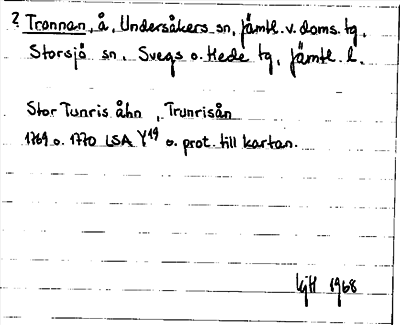 ? Tronnan, å, Undersåkers sn, Jämtl. v. doms. tg,
Storsjö sn, Svegs o. Hede tg, Jämtl. l.
Stor Tunris åhn, Trunrisån
1769 o. 1770 LSA Y19 o. prot. till kartan.
1968